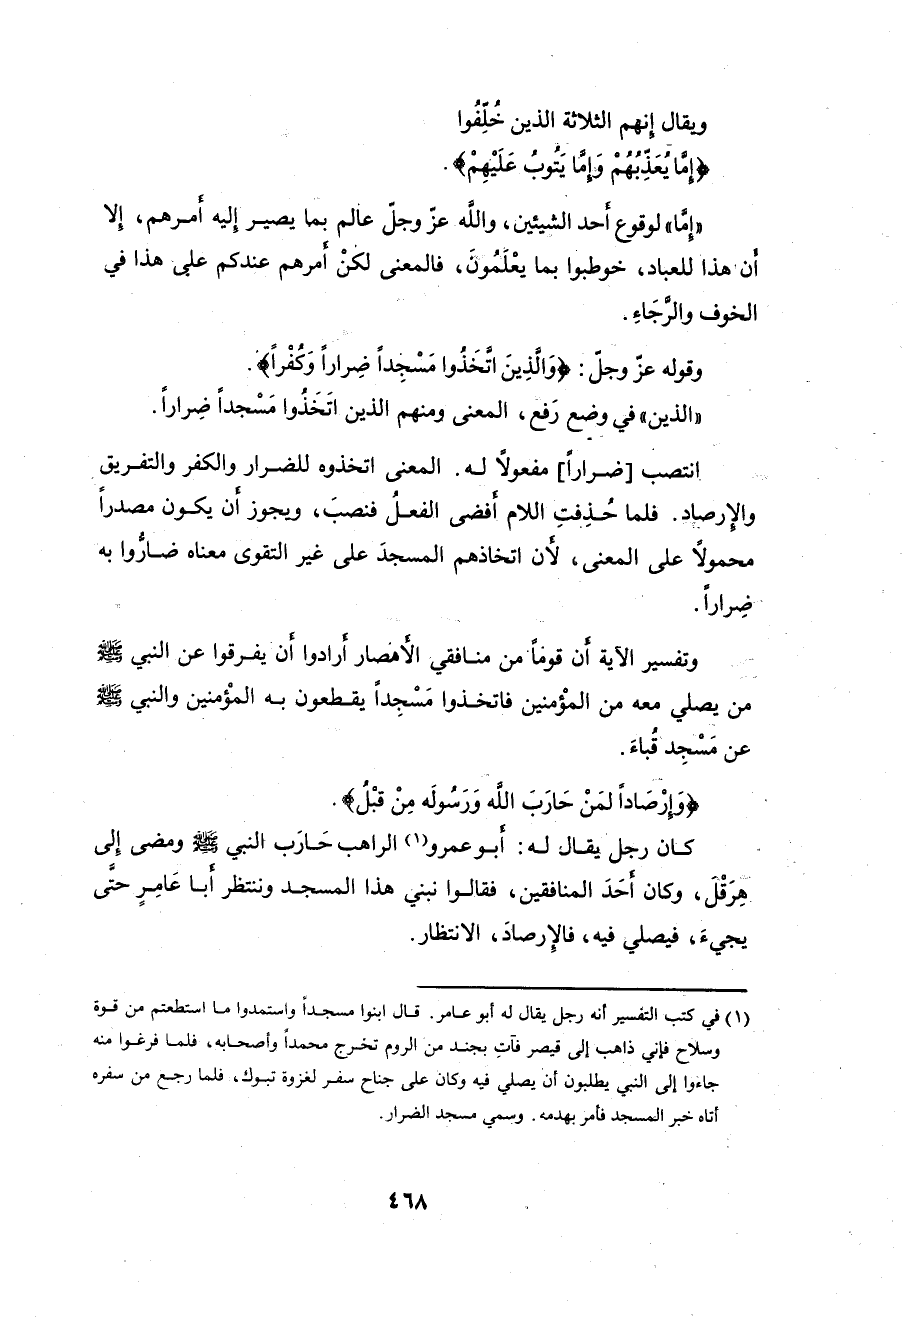 ويقال إنهم الثلاثة الذين خُلِّفُوا
﴿إِمَّا يُعَذِّبُهُمْ وَإِمَّا يَتُوبُ عَلَيْهِمْ﴾.
«إمَّا» لوقوع أحد الشيئين، واللَّه عزّ وجلّ عالم بما يصير إليه أمرهم، إلا
أن هذا للعباد، خوطبوا بما يعْلَمُونَ، فالمعنى لكنْ أمرهم عندكم على هذا في
الخوف والرَّجَاءِ.
وقوله عزّ وجلّ: ﴿وَالَّذِينَ اتَّخَذُوا مَسْجِداً ضِراراً وَكُفْراً﴾.
«الذين» في وضع رَفع، المعنى ومنهم الذين اتَخَذُوا مَسْجداً ضِراراً.
انتصب [ضراراً] مفعولًا له. المعنى اتخذوه للضرار والكفر والتفريق
والإرصاد. فلما حُذِفتِ اللام أفضى الفعلُ فنصبَ، ويجوز أن يكون مصدراً
محمولًا على المعنى، لأن اتخاذهم المسجدَ على غير التقوى معناه ضارُّوا به
ضِراراً.
وتفسير الآية أن قوماً من منافقي الأنصار أرادوا أن يفرقوا عن النبي ﷺ
من يصلي معه من المؤْمنين فاتخذوا مَسْجِداً يقطعون به المؤمنين والنبي ﷺ
عن مَسْجِد قُباءَ.
﴿وَإِرْصَاداً لمَنْ حَارَبَ اللَّه وَرَسُولَه مِنْ قبْلُ﴾.
كان رجل يقال له: أبو عمرو(١) الراهب حَارَب النبي ﷺ ومضى إلى
هِرَقْلَ، وكان أَحَدَ المنافقين، فقالوا نبني هذا المسجد وننتظر أبا عَامِرٍ حتَّى
يجيءَ، فيصلي فيه، فالإرصادَ، الانتظار.
(١) في كتب التفسير أنه رجل يقال له أبو عامر. قال ابنوا مسجداً واستمدوا ما استطعتم من قوة
وسلاح فإني ذاهب إلى قيصر فآتِ بجند من الروم تخرج محمداً وأصحابه، فلما فرغوا منه
جاءوا إلى النبي يطلبون أن يصلي فيه وكان على جناح سفر لغزوة تبوك، فلما رجع من سفره
أتاه خبر المسجد فأمر بهدمه. وسمي مسجد الضرار.
٤٦٨